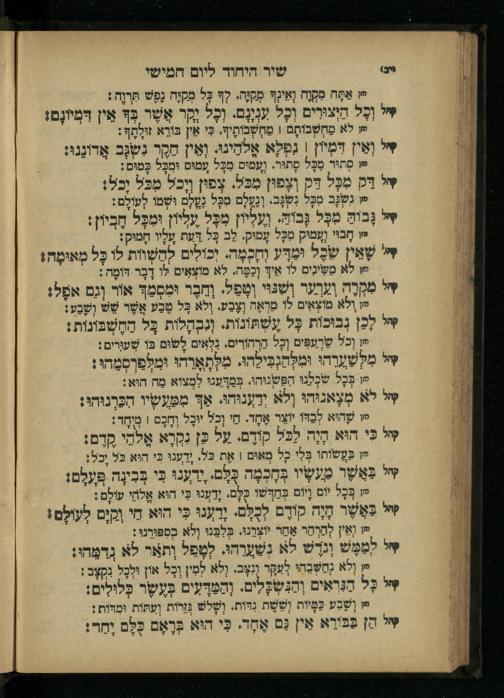 (יב) שיר היחוד ליום חמישי
חזן אַתָּה מִקְוֶה וְאֵינְךָ מְקַוֶּה, לְךָ כָּל מְקַוֶּה נֶפֶשׁ תִּרְוֶה:
קהל וְכָל הַיְצוּרִים וְכָל עִנְיָנָם, וְכָל יְקָר אֲשֶׁר בְּךָ אֵין דִּמְיוֹנָם:
חזן לֹא מַחְשְׁבוֹתָם | מַחְשְׁבוֹתֶיךָ, כִּי אֵין בּוֹרֵא זוּלָתֶךָ:
קהל וְאֵין דִּמְיוֹן | נִפְלָא אֱלֹהֵינוּ, וְאֵין חֵקֶר נִשְׂגָּב אֲדוֹנֵנוּ:
חזן סָתוּר מִכָּל סָתוּר, וְעָמוּס מִכָּל עָמוּס וּמִכָּל כָּמוּס:
קהל דַּק מִכָּל דַּק וְצָפוּן מִכֹּל, צָפוּן וְיָכֹל מִכֹּל יָכֹל:
חזן נִשְׂגָּב מִכָּל נִשְׂגָּב, וְנֶעְלָם מִכָּל נֶעְלָם וּשְׁמוֹ לְעוֹלָם:
קהל גָּבוֹהַּ מִכָּל גָּבוֹהַּ, וְעֶלְיוֹן מִכָּל עֶלְיוֹן וּמִכָּל חֶבְיוֹן:
חזן חָבוּי וְעָמוּק מִכָּל עָמוּק, לֵב כָּל דַּעַת עָלָיו חָמוּק:
קהל שֶׁאֵין שֵׂכֶל וּמַדָּע וְחָכְמָה, יְכוֹלִים לְהַשְׁווֹת לוֹ כָּל מְאוּמָה:
חזן לֹא מַשִּׂיגִים לוֹ אֵיךְ וְכַמָּה, לֹא מוֹצְאִים לוֹ דָּבָר דּוֹמֶה:
קהל מִקְרֶה וְעַרְעַר וְשִׁנּוּי וְטָפֵל, וְחֶבֶר וּמִסְמָךְ אוֹר וְגַם אֹפֶל:
חזן וְלֹא מוֹצְאִים לוֹ מַרְאֶה וְצֶבַע, וְלֹא כָּל טֶבַע אֲשֶׁר שֵׁשׁ וָשֶׁבַע:
קהל לָכֵן נְבוּכוֹת כָּל עֶשְׁתּוֹנוֹת, וְנִבְהָלוֹת כָּל הַחֶשְׁבּוֹנוֹת:
חזן וְכֹל שַׂרְעַפִּים וְכָל הַרְהוֹרִים, נִלְאִים לָשׂוּם בּוֹ שִׁעוּרִים:
קהל מִלְּשַׁעֲרֵהוּ וּמִלְּהַגְבִּילֵהוּ, מִלְּתָאֲרֵהוּ וּמִלְּפַרְסְמֵהוּ:
חזן בְּכָל שִׂכְלֵנוּ חִפַּשְׂנוּהוּ, בְּמַדָּעֵנוּ לִמְצוֹא מַה הוּא:
קהל לֹא מְצָאנוּהוּ וְלֹא יְדַעְנוּהוּ, אַךְ מִמַּעֲשָׂיו הִכַּרְנוּהוּ:
חזן שֶׁהוּא לְבַדּוֹ יוֹצֵר אֶחָד, חַי וְכֹל יוּכָל וְחָכָם | מְיֻחָד:
קהל כִּי הוּא הָיָה לַכֹּל קוֹדֵם, עַל כֵּן נִקְרָא אֱלֹהֵי קֶדֶם:
חזן בַּעֲשׂוֹתוֹ בְּלִי כָל מְאוּם | אֶת כֹּל, יָדַעְנוּ כִּי הוּא כֹּל יָכֹל:
קהל בַּאֲשֶׁר מַעֲשָׂיו בְּחָכְמָה כֻּלָּם, יָדַעְנוּ כִּי בְּבִינָה פְּעָלָם:
חזן בְּכָל יוֹם וָיוֹם בְּחַדְּשׁוֹ כֻּלָּם, יָדַעְנוּ כִּי הוּא אֱלֹהֵי עוֹלָם:
קהל בַּאֲשֶׁר הָיָה קוֹדֵם לְכֻלָּם, יָדַעְנוּ כִּי הוּא חַי וְקַיָּם לְעוֹלָם:
חזן וְאֵין לְהַרְהֵר אַחַר יוֹצְרֵנוּ, בְּלִבֵּנוּ וְלֹא בְסִפּוּרֵנוּ:
קהל לְמַמָּשׁ וְגֹדֶשׁ לֹא נְשַׁעֲרֵהוּ, לְטָפֵל וְתֹאַר לֹא נְדַמֵּהוּ:
חזן וְלֹא נַחְשְׁבֵהוּ לְעִקָּר וְנֶצֶב, וְלֹא לְמִין וְכָל אוֹן וּלְכָל נִקְצָב:
קהל כָּל הַנִּרְאִים וְהַנִּשְׂכָּלִים, וְהַמַּדָּעִים בְּעֶשֶׂר כְּלוּלִים:
חזן וְשֶׁבַע כַּמִּיּוֹת וְשֵׁשֶׁת נִדּוֹת, וְשָׁלֹשׁ גְּזֵרוֹת וְעִתּוֹת וּמִדּוֹת:
קהל הֵן בַּבּוֹרֵא אֵין גַּם אֶחָד, כִּי הוּא בְּרָאָם כֻּלָּם יָחַד: